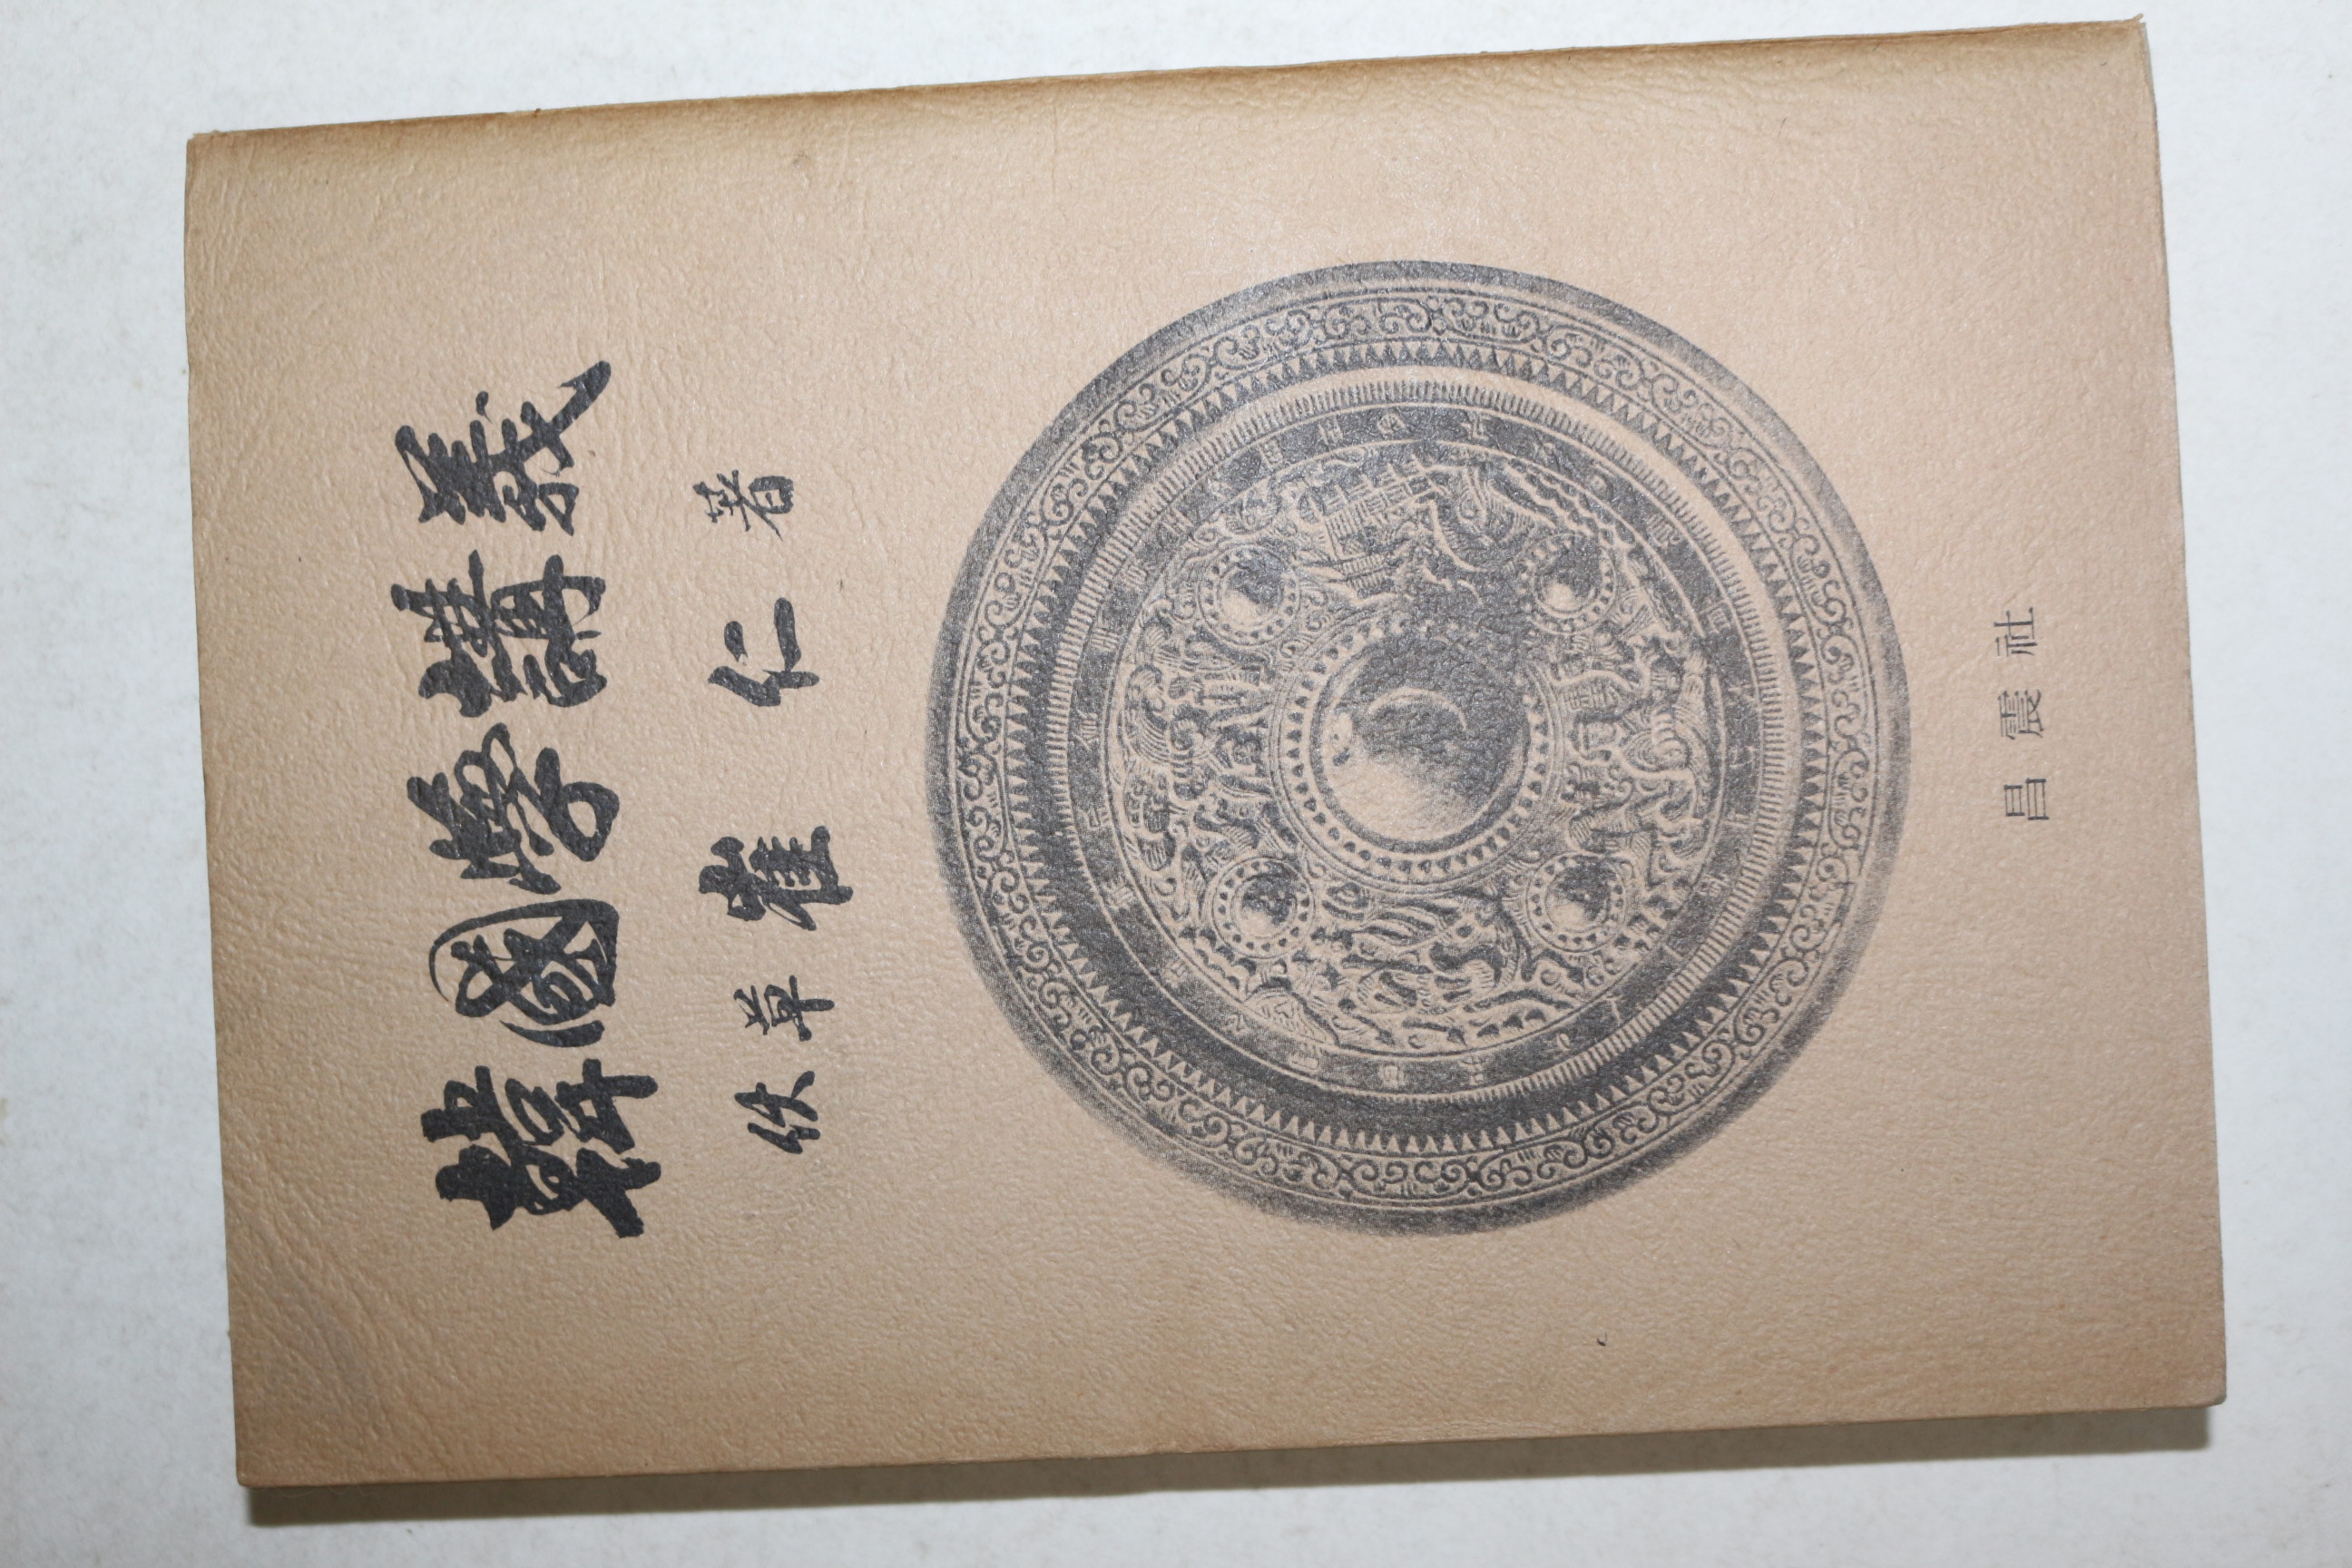 韓國學講義
伏草 崔仁 著
昌震社